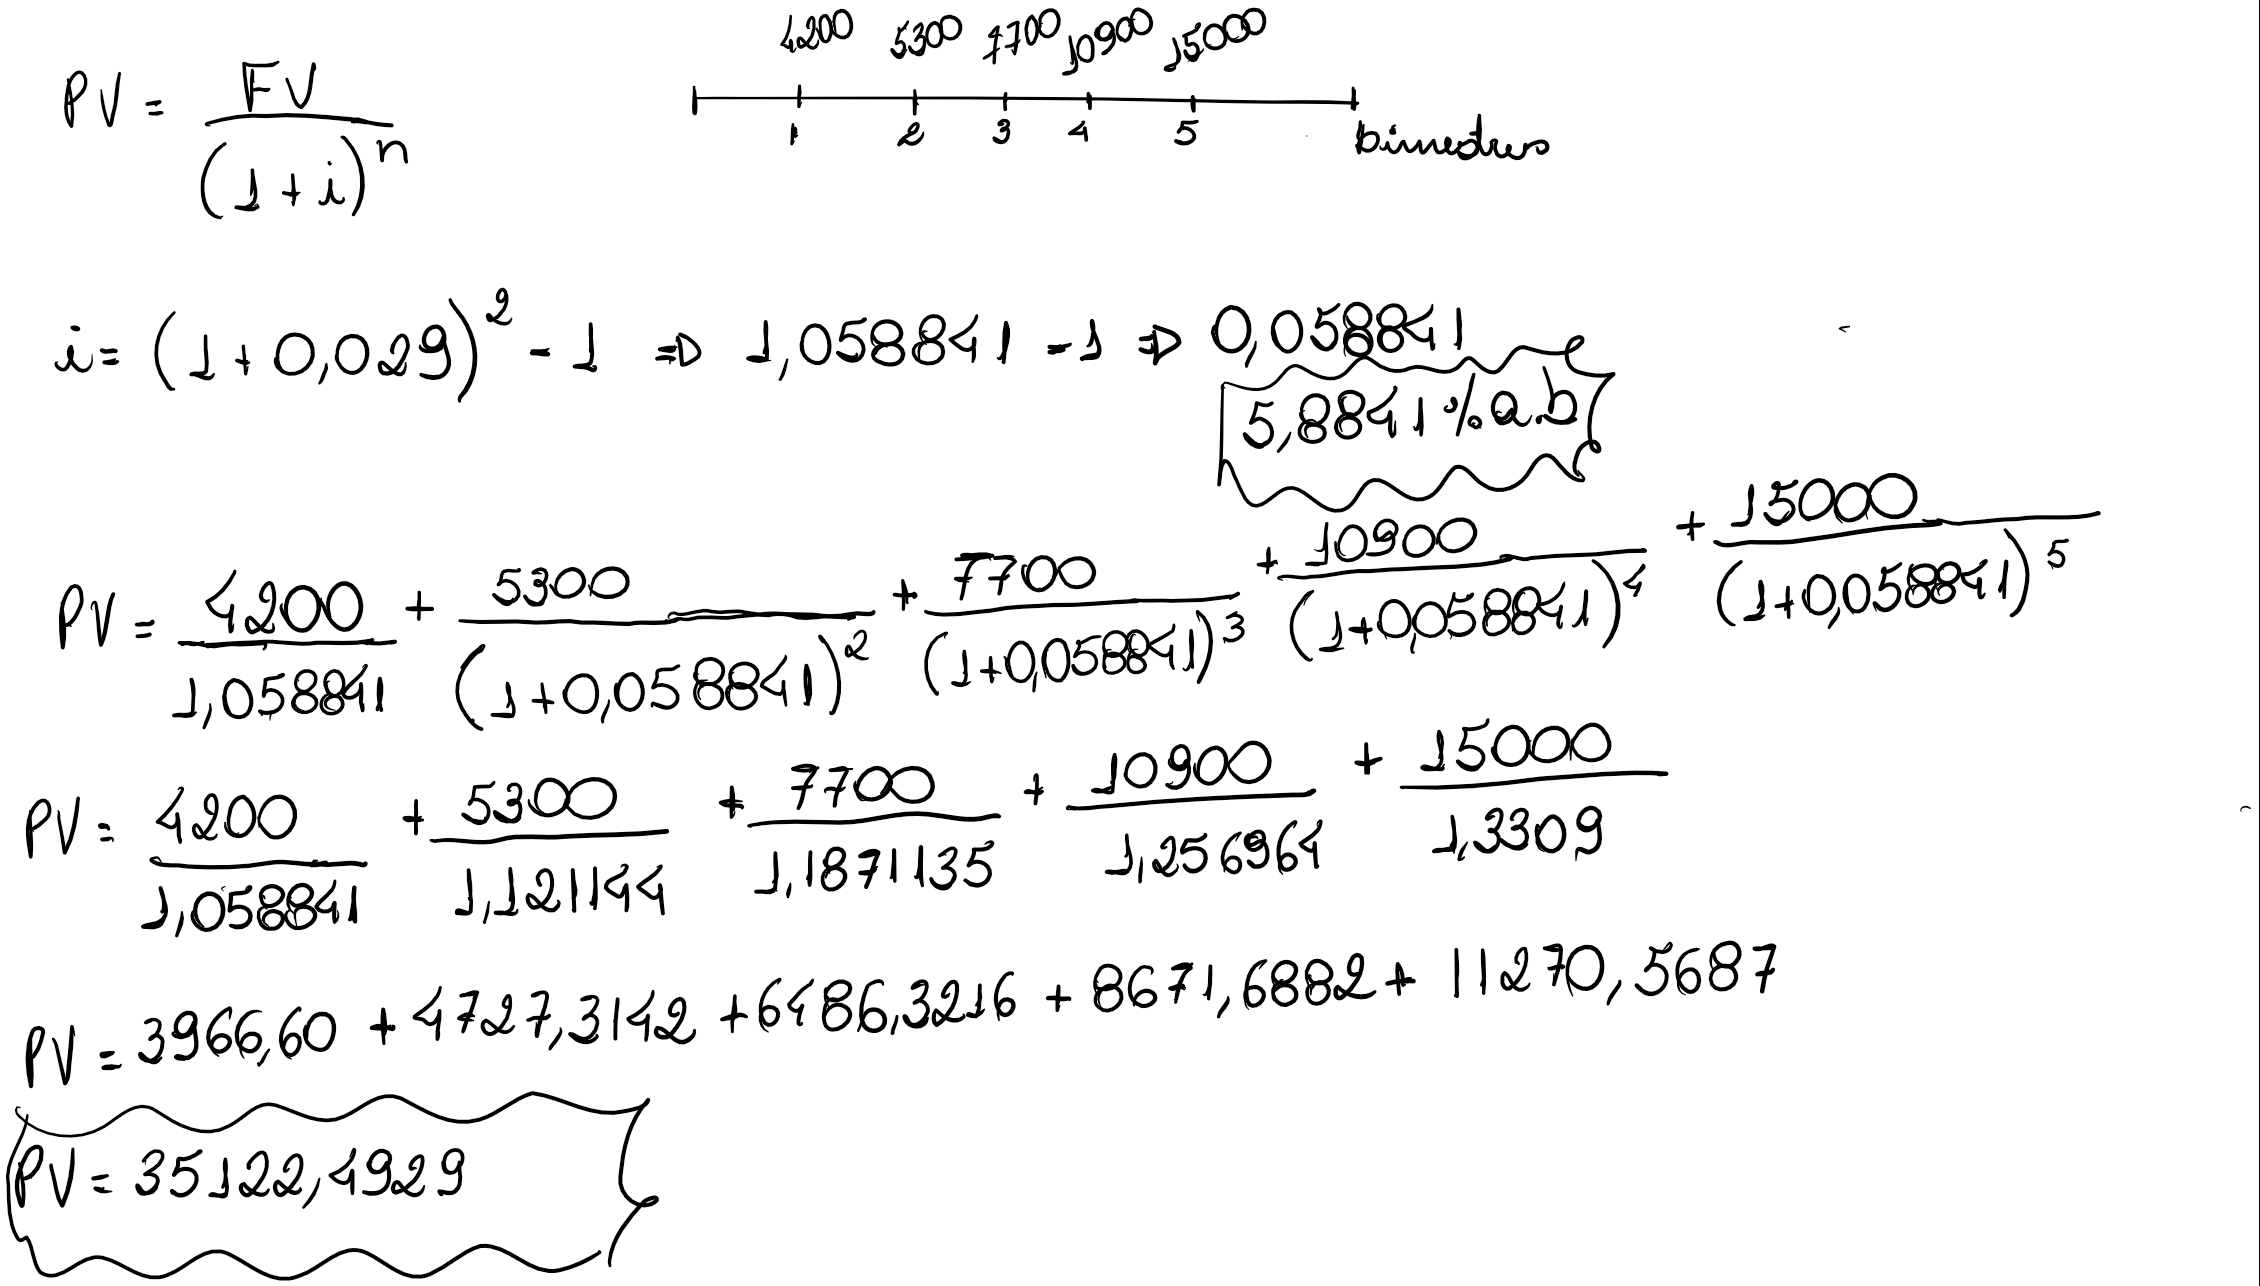 4200 5300 7700 10900 15000
PV = FV / (1 + i)^n
1 2 3 4 5 bimestres
i = (1 + 0,029)^2 - 1 ⇒ 1,058841 - 1 ⇒ 0,058841
5,8841 % a.b
PV = 4200 / 1,058841 + 5300 / (1+0,058841)^2 + 7700 / (1+0,058841)^3 + 10900 / (1+0,058841)^4 + 15000 / (1+0,058841)^5
PV = 4200 / 1,058841 + 5300 / 1,121144 + 7700 / 1,1871135 + 10900 / 1,256964 + 15000 / 1,3309
PV = 3966,60 + 4727,3142 + 6486,3216 + 8671,6882 + 11270,5687
PV = 35122,4929